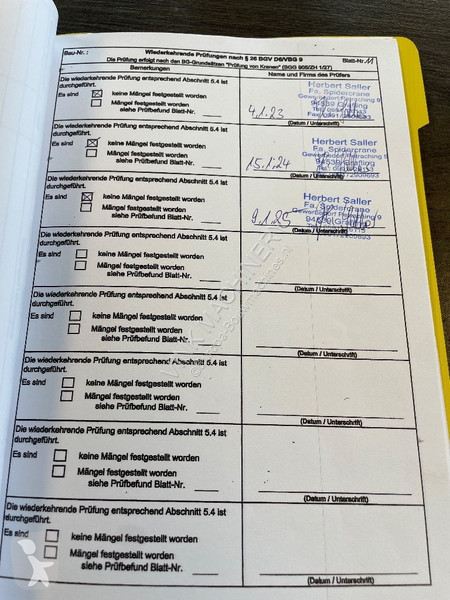 Bau-Nr.:
Wiederkehrende Prüfungen nach § 26 BGV D6/VBG 9
Die Prüfung erfolgt nach den BG-Grundsätzen "Prüfung von Kranen" (BGG 905/ZH 1/27)
Blatt-Nr. 11
Bemerkungen
Name und Firma des Prüfers
Die wiederkehrende Prüfung entsprechend Abschnitt 5.4 ist
durchgeführt.
Es sind keine Mängel festgestellt worden
Mängel festgestellt worden
siehe Prüfbefund Blatt-Nr.
Herbert Saller
Fa. Spidercrane
4.1.23
(Datum / Unterschrift)
Die wiederkehrende Prüfung entsprechend Abschnitt 5.4 ist
durchgeführt.
Es sind keine Mängel festgestellt worden
Mängel festgestellt worden
siehe Prüfbefund Blatt-Nr.
Herbert Saller
Fa. Spidercrane
15.1.24
(Datum / Unterschrift)
Die wiederkehrende Prüfung entsprechend Abschnitt 5.4 ist
durchgeführt.
Es sind keine Mängel festgestellt worden
Mängel festgestellt worden
siehe Prüfbefund Blatt-Nr.
Herbert Saller
Fa. Spidercrane
9.1.25
(Datum / Unterschrift)
Die wiederkehrende Prüfung entsprechend Abschnitt 5.4 ist
durchgeführt.
Es sind keine Mängel festgestellt worden
Mängel festgestellt worden
siehe Prüfbefund Blatt-Nr.
(Datum / Unterschrift)
Die wiederkehrende Prüfung entsprechend Abschnitt 5.4 ist
durchgeführt.
Es sind keine Mängel festgestellt worden
Mängel festgestellt worden
siehe Prüfbefund Blatt-Nr.
(Datum / Unterschrift)
Die wiederkehrende Prüfung entsprechend Abschnitt 5.4 ist
durchgeführt.
Es sind keine Mängel festgestellt worden
Mängel festgestellt worden
siehe Prüfbefund Blatt-Nr.
(Datum / Unterschrift)
Die wiederkehrende Prüfung entsprechend Abschnitt 5.4 ist
durchgeführt.
Es sind keine Mängel festgestellt worden
Mängel festgestellt worden
siehe Prüfbefund Blatt-Nr.
(Datum / Unterschrift)
Die wiederkehrende Prüfung entsprechend Abschnitt 5.4 ist
durchgeführt.
Es sind keine Mängel festgestellt worden
Mängel festgestellt worden
siehe Prüfbefund Blatt-Nr.
(Datum / Unterschrift)